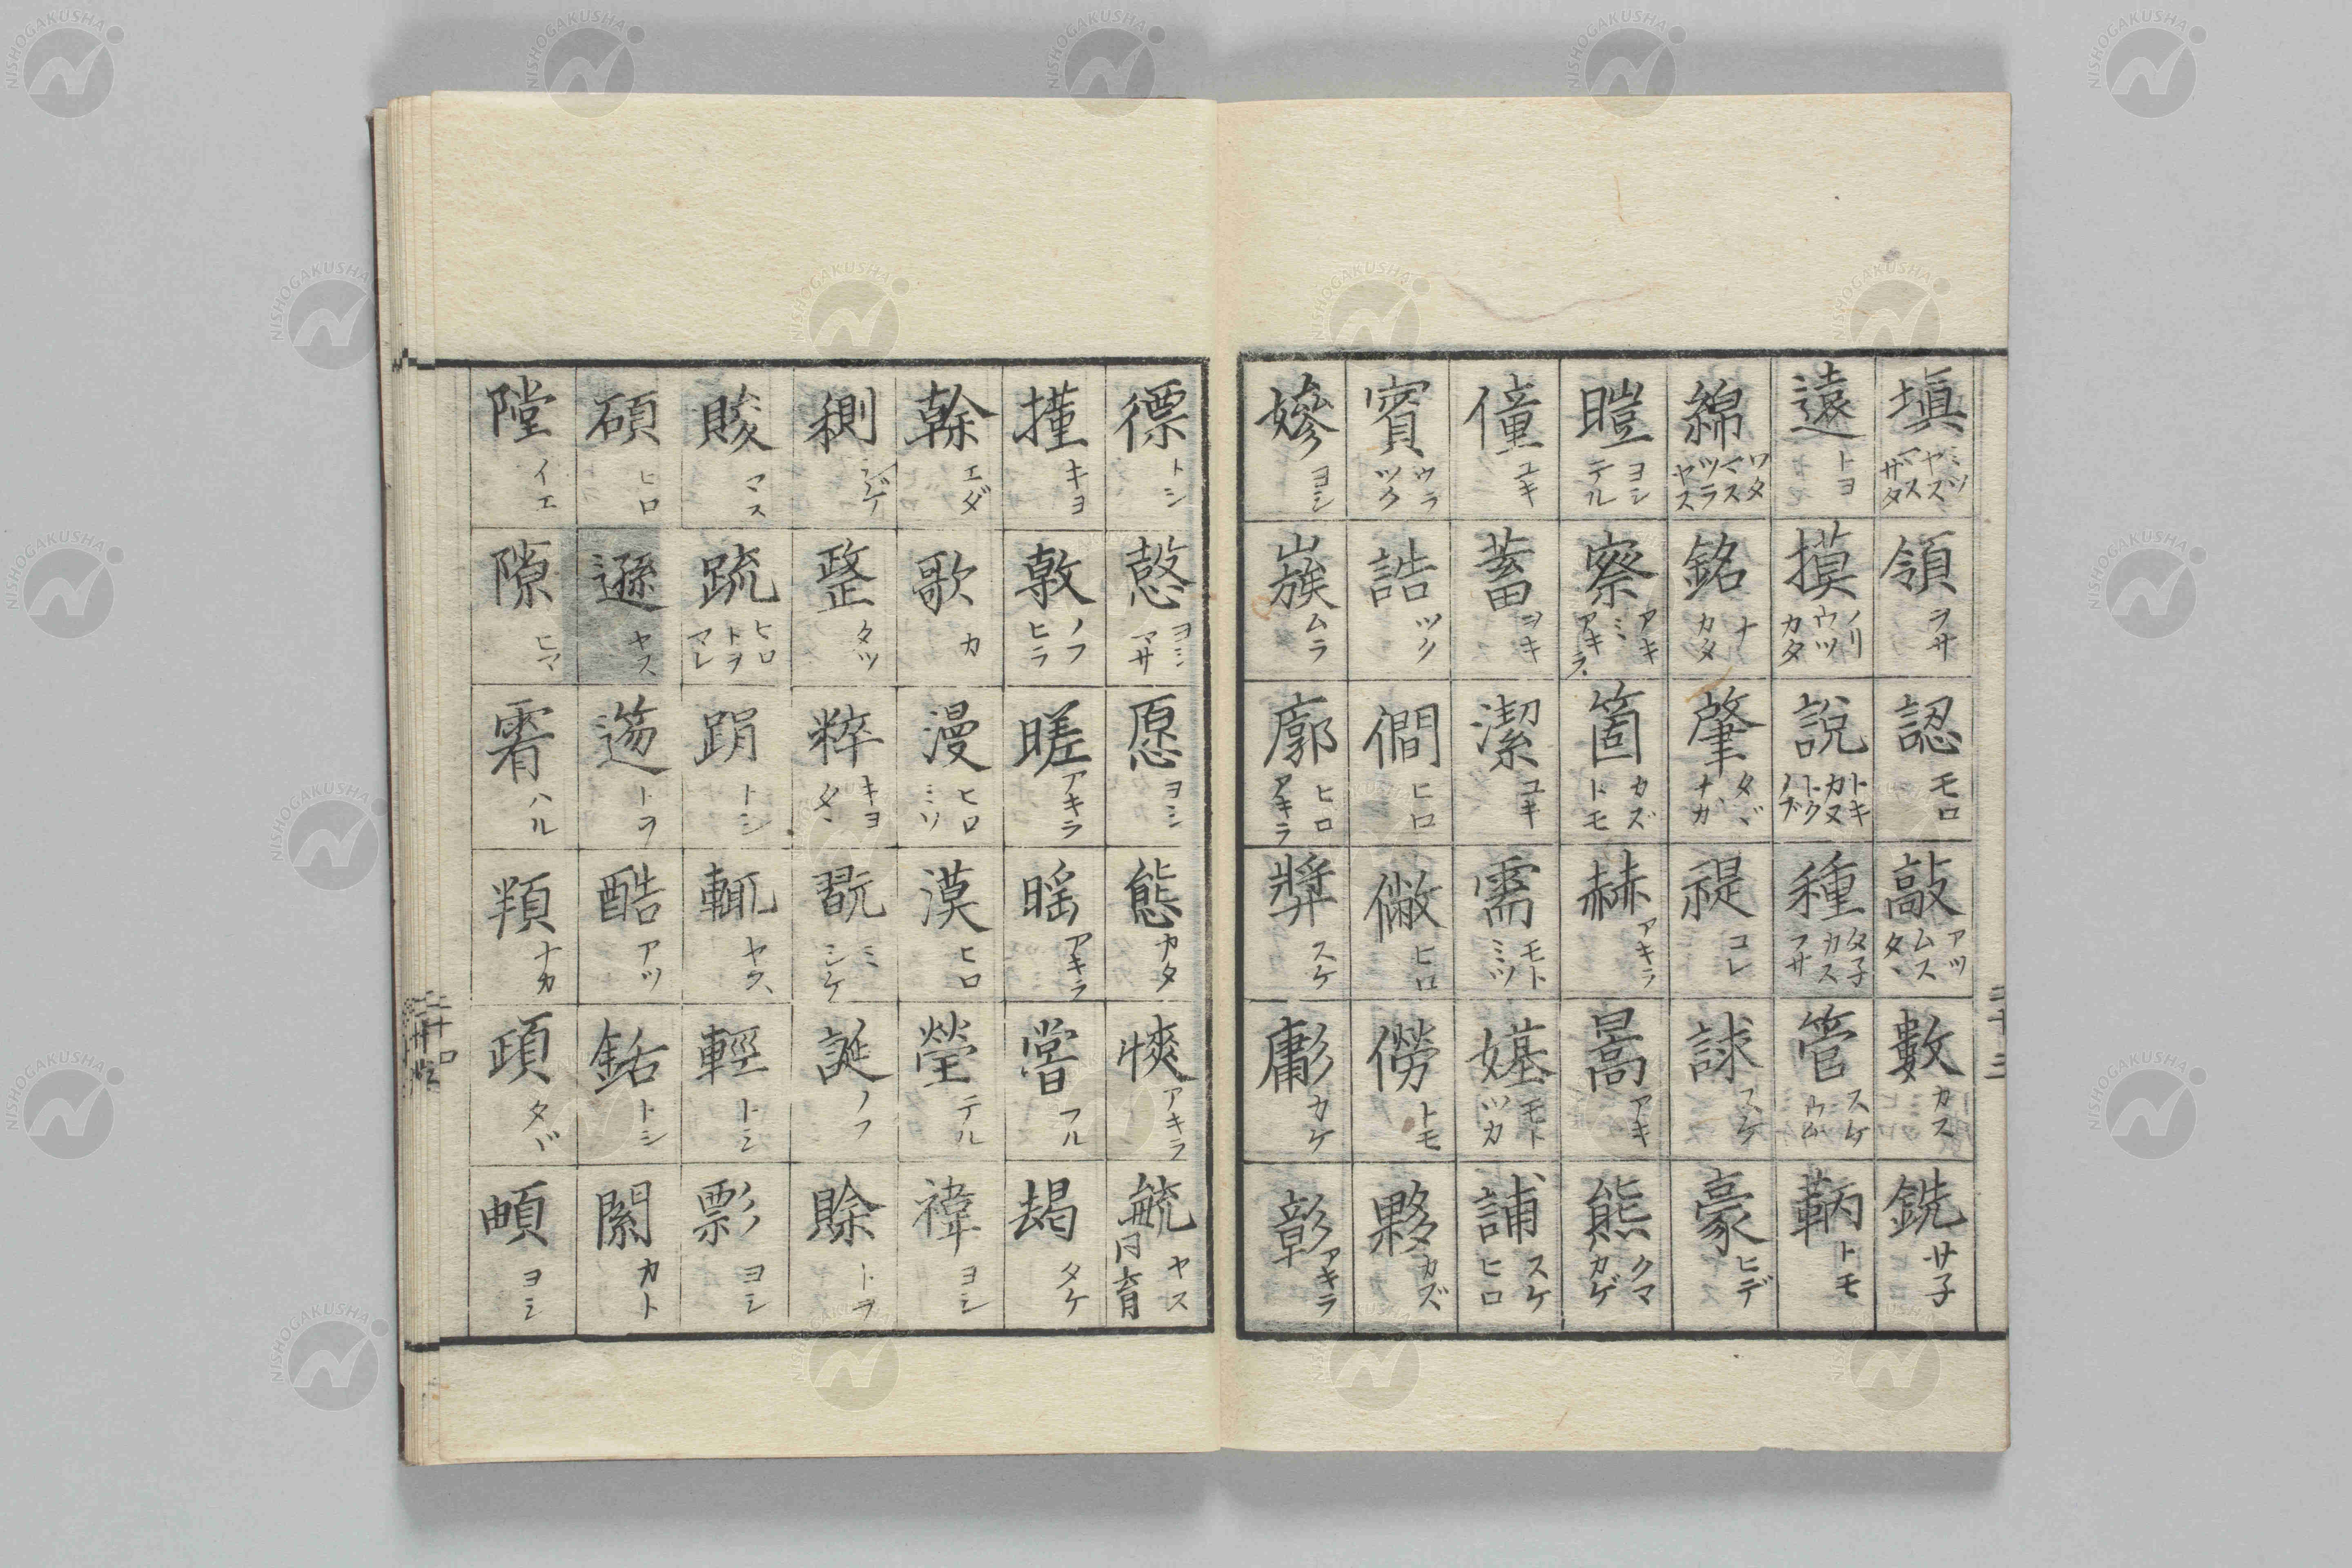 塡 ミツ ヤス マス サタ
領 ヲサ
認 モロ
敲 アツ ムス タヽ
數 カス
銑 サ子
遠 トヨ
摸 ノリ ウツ カタ
說 トキ カヌ トク ノブ
種 タ子 カス フサ
管 スケ ウム
鞆 トモ
綿 ワタ マス ツラ ヤス
銘 ナ カタ
肇 タヾ ナガ
禔 コレ
諄 スケ
豪 ヒデ
暟 ヨシ テル
察 アキ ミ アキラ
箇 カズ トモ
赫 アキラ
暠 アキ
熊 クマ カゲ
僮 ユキ
蓄 ヲキ
潔 ユキ
需 モト ミツ
嫤 モト ツカ
誧 スケ ヒロ
賓 ウラ ツク
誥 ツク
僩 ヒロ
僘 ヒロ
僗 トモ
夥 カズ
嫪 ヨシ
嵸 ムラ
廓 ヒロ アキラ
獎 スケ
彲 カケ
彰 アキラ
徱 トシ
愨 ヨシ マサ
愿 ヨシ
態 カタ
慡 アキラ
毓 ヤス 同育
摧 キヨ
敦 ノフ ヒラ
暛 アキラ
暚 アキラ
嘗 フル
朅 タケ
榦 エダ
歌 カ
漫 ヒロ ミツ
漠 ヒロ
瑩 テル
禕 ヨシ
稝 シゲ
整 タツ
粹 キヨ タヽ
翫 ミ シケ
誕 ノフ
賖 トヲ
賐 マス
疏 ヒロ トヲ マレ
踃 トシ
輒 ヤスヽ
輕 トシ
影 ヨシ
碩 ヒロ
遜 ヤス
逿 トヲ
酷 アツ
鉐 トシ
關 カト
隚 イエ
隙 ヒマ
霄 ハル
頖 ナカ
頙 タヾ
頔 ヨシ
三十三
三十四
NISHOGAKUSHA